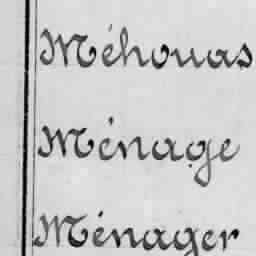 Méhouas
Ménage
Ménager